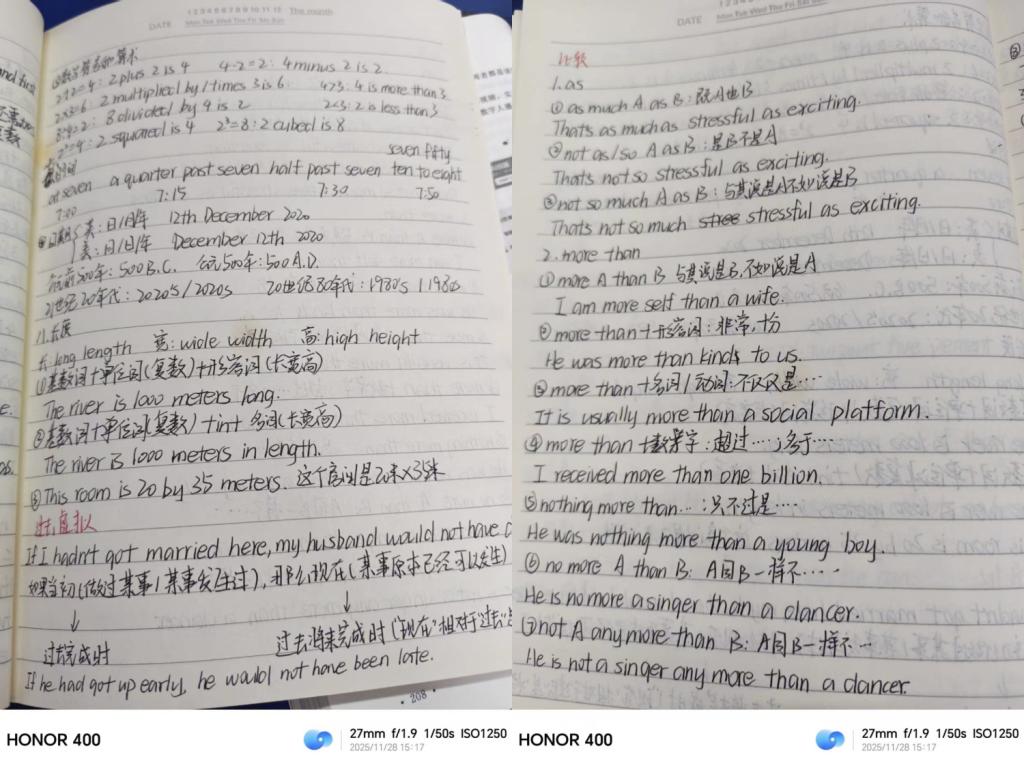 1 2 3 4 5 6 7 8 9 10 11 12 The month
DATE Mon Tue Wed Thu Fri Sat Sun
算术
2+2=4: 2 plus 2 is 4 4-2=2: 4 minus 2 is 2
2×3=6: 2 multiplied by / times 3 is 6. 4>3: 4 is more than 3
8÷4=2: 8 divided by 4 is 2 2<3: 2 is less than 3
2²=4: 2 squared is 4 2³=8: 2 cubed is 8
seven fifty
时间
at seven a quarter past seven half past seven ten to eight
7:00 7:15 7:30 7:50
日期 英: 日/月/年 12th December 2020
美: 日/月/年 December 12th 2020
公前500年: 500 B.C. 公元500年: 500 A.D.
21世纪20年代: 2020's / 2020s 20世纪80年代: 1980's / 1980s
长度
长: long length 宽: wide width 高: high height
①基数词+单位词(复数)+形容词(长宽高)
The river is 1000 meters long.
②基数词+单位词(复数)+in+名词(长宽高)
The river is 1000 meters in length.
③This room is 20 by 35 meters. 这个房间是20米×35米
过去虚拟
If I hadn't got married here, my husband would not have
如果当初(做过某事/某事发生过), 那么现在(某事原本已经可以发生)
↓ ↓
过去完成时 过去将来完成时("现在"相对于"过去"
If he had got up early, he would not have been late.
·208·
DATE Mon Tue Wed Thu Fri Sat Sun
比较
1. as
①as much A as B: 既A也B
Thats as much as stressful as exciting.
②not as/so A as B: 是B不是A
Thats not so stressful as exciting.
③not so much A as B: 与其说是A不如说是B
Thats not so much stressful as exciting.
2. more than
①more A than B 与其说是B,不如说是A
I am more self than a wife.
②more than+形容词: 非常,十分
He was more than kinds to us.
③more than+名词/动词: 不仅仅是…
It is usually more than a social platform.
④more than+数字: 超过…; 多于…
I received more than one billion.
⑤nothing more than…: 只不过是…
He was nothing more than a young boy.
⑥no more A than B: A同B一样不……
He is no more a singer than a dancer.
⑦not A any more than B: A同B一样不…
He is not a singer any more than a dancer.
HONOR 400
27mm f/1.9 1/50s ISO1250
2025/11/28 15:17
HONOR 400
27mm f/1.9 1/50s ISO1250
2025/11/28 15:17